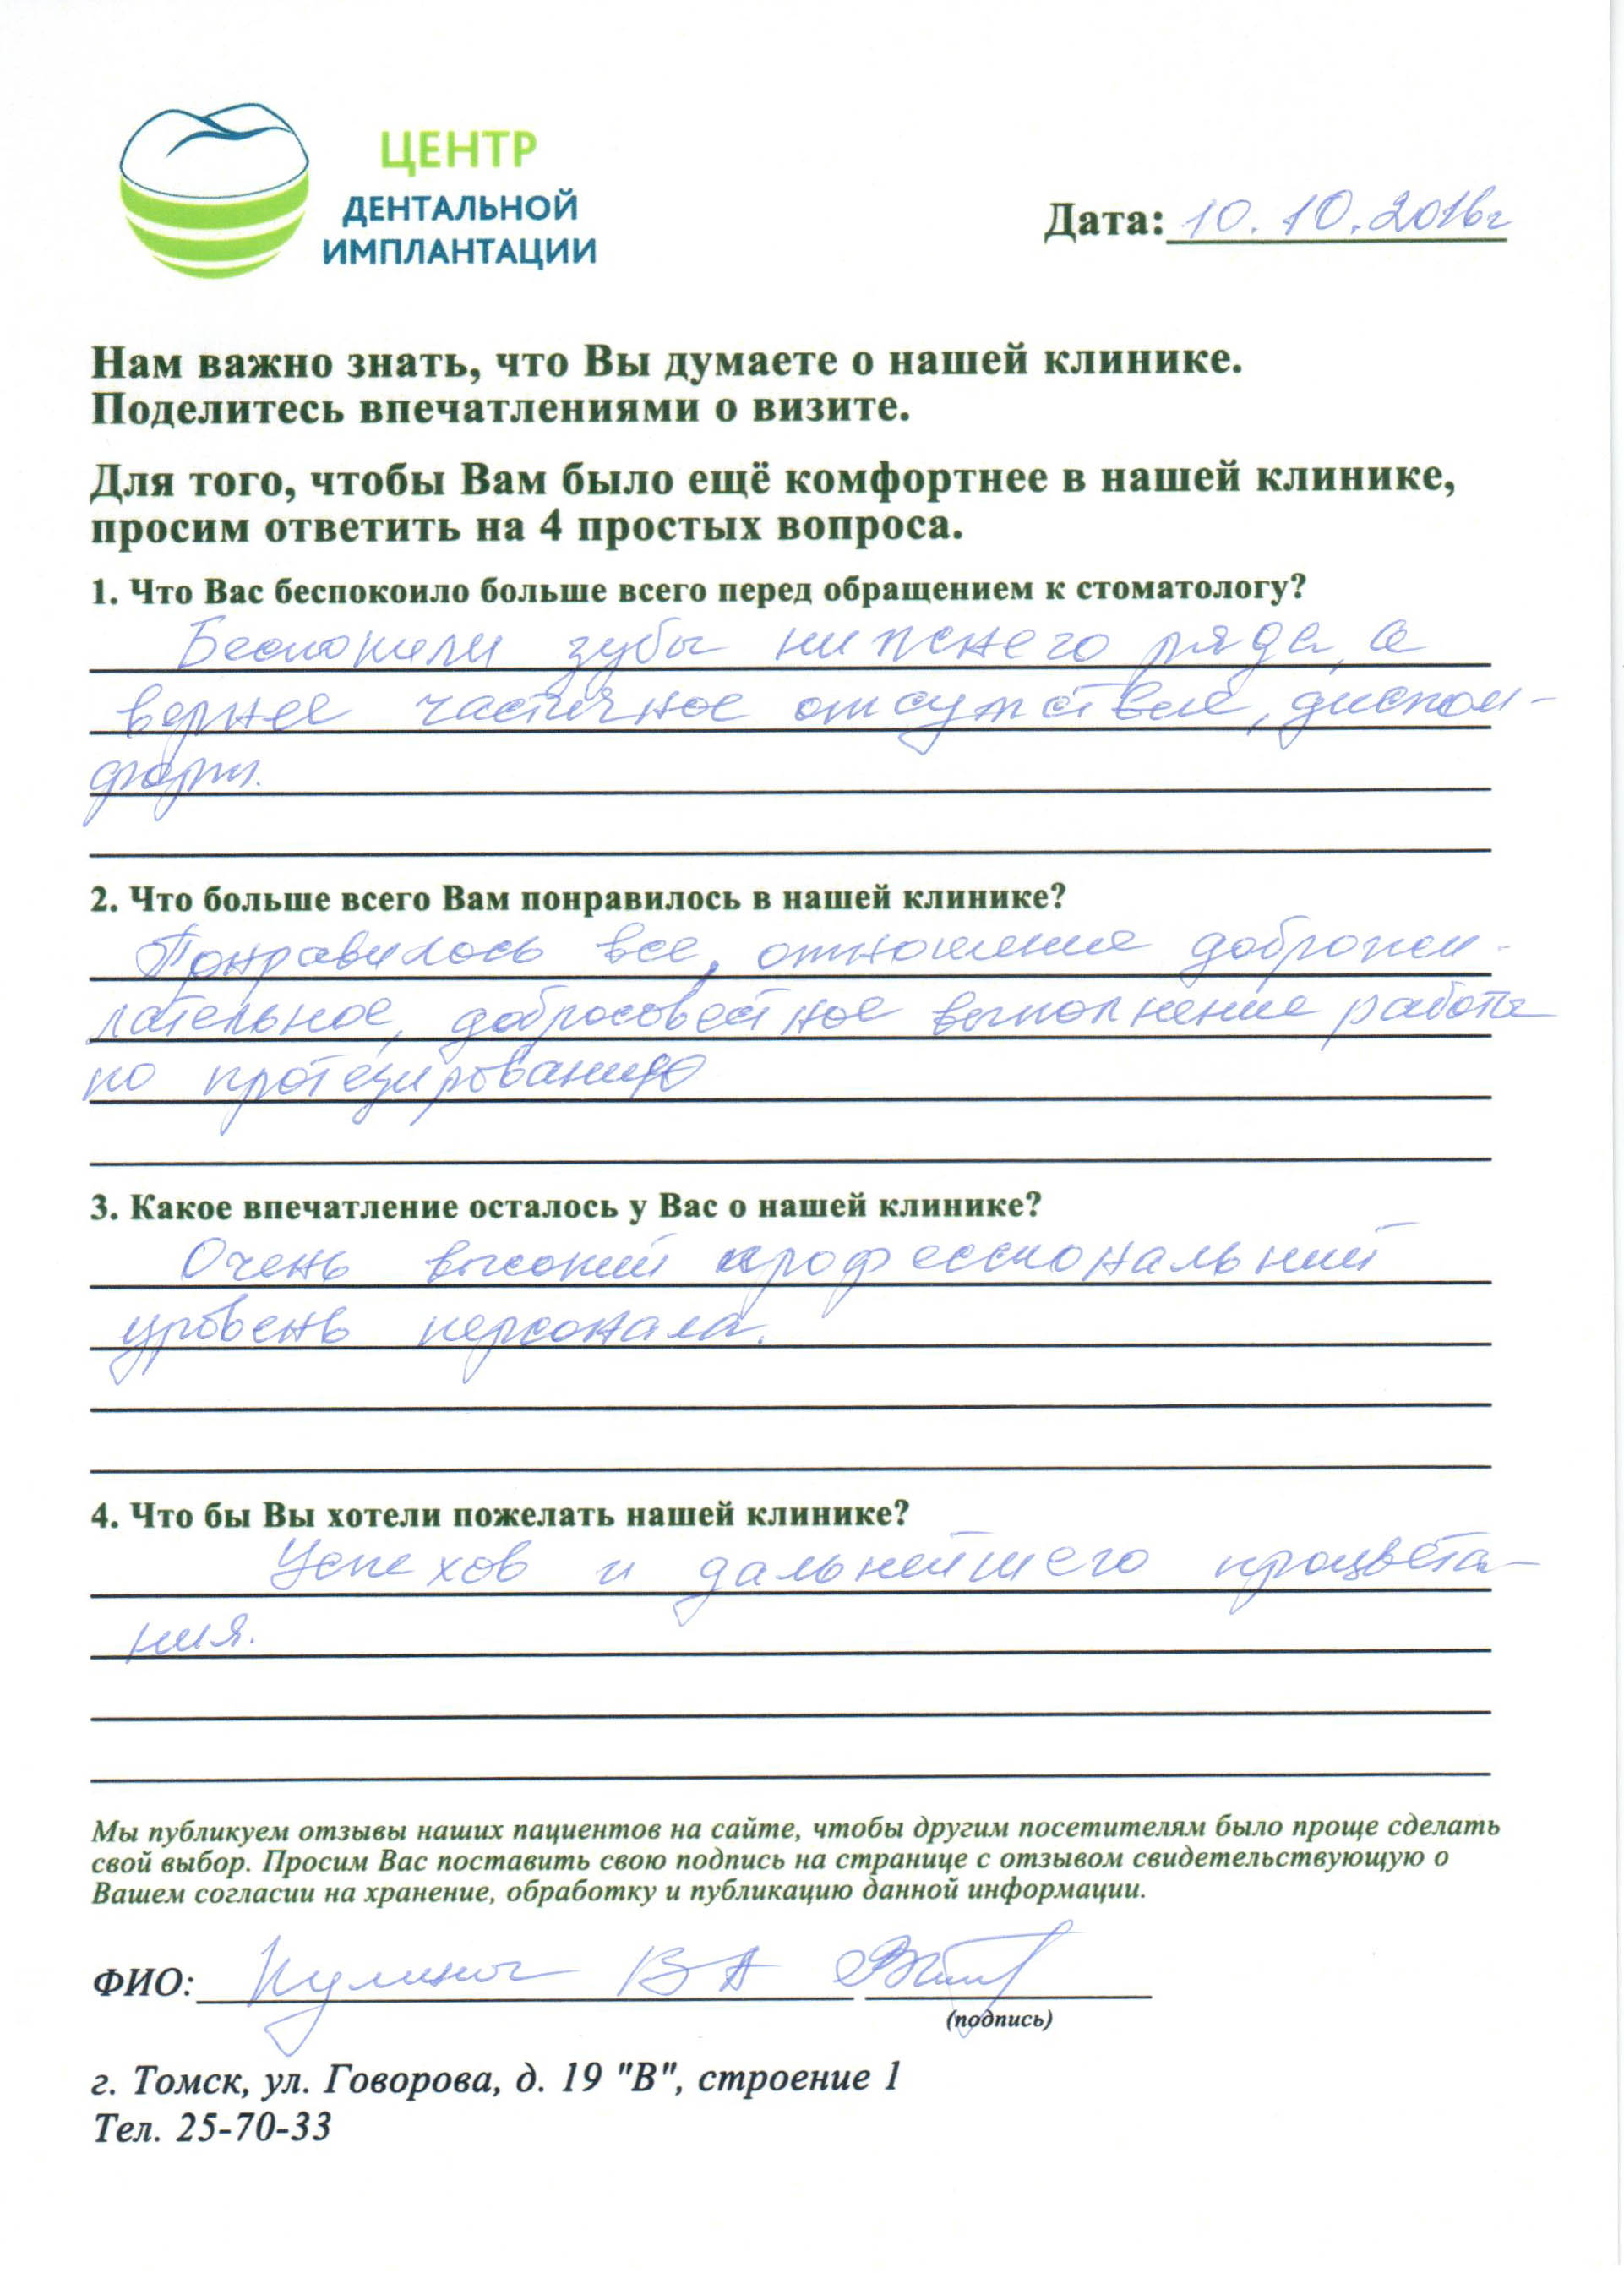 ЦЕНТР
ДЕНТАЛЬНОЙ
ИМПЛАНТАЦИИ
Дата: 10.10.2016г
Нам важно знать, что Вы думаете о нашей клинике.
Поделитесь впечатлениями о визите.
Для того, чтобы Вам было ещё комфортнее в нашей клинике,
просим ответить на 4 простых вопроса.
1. Что Вас беспокоило больше всего перед обращением к стоматологу?
Беспокоили зубы нижнего ряда, а
вернее частичное отсутствие, диском-
форт.
2. Что больше всего Вам понравилось в нашей клинике?
Понравилось все, отношение доброже-
лательное, добросовестное выполнение работы
по протезированию
3. Какое впечатление осталось у Вас о нашей клинике?
Очень высокий профессиональный
уровень персонала.
4. Что бы Вы хотели пожелать нашей клинике?
Успехов и дальнейшего процвета-
ния.
Мы публикуем отзывы наших пациентов на сайте, чтобы другим посетителям было проще сделать
свой выбор. Просим Вас поставить свою подпись на странице с отзывом свидетельствующую о
Вашем согласии на хранение, обработку и публикацию данной информации.
ФИО: ВА
(подпись)
г. Томск, ул. Говорова, д. 19 "В", строение 1
Тел. 25-70-33